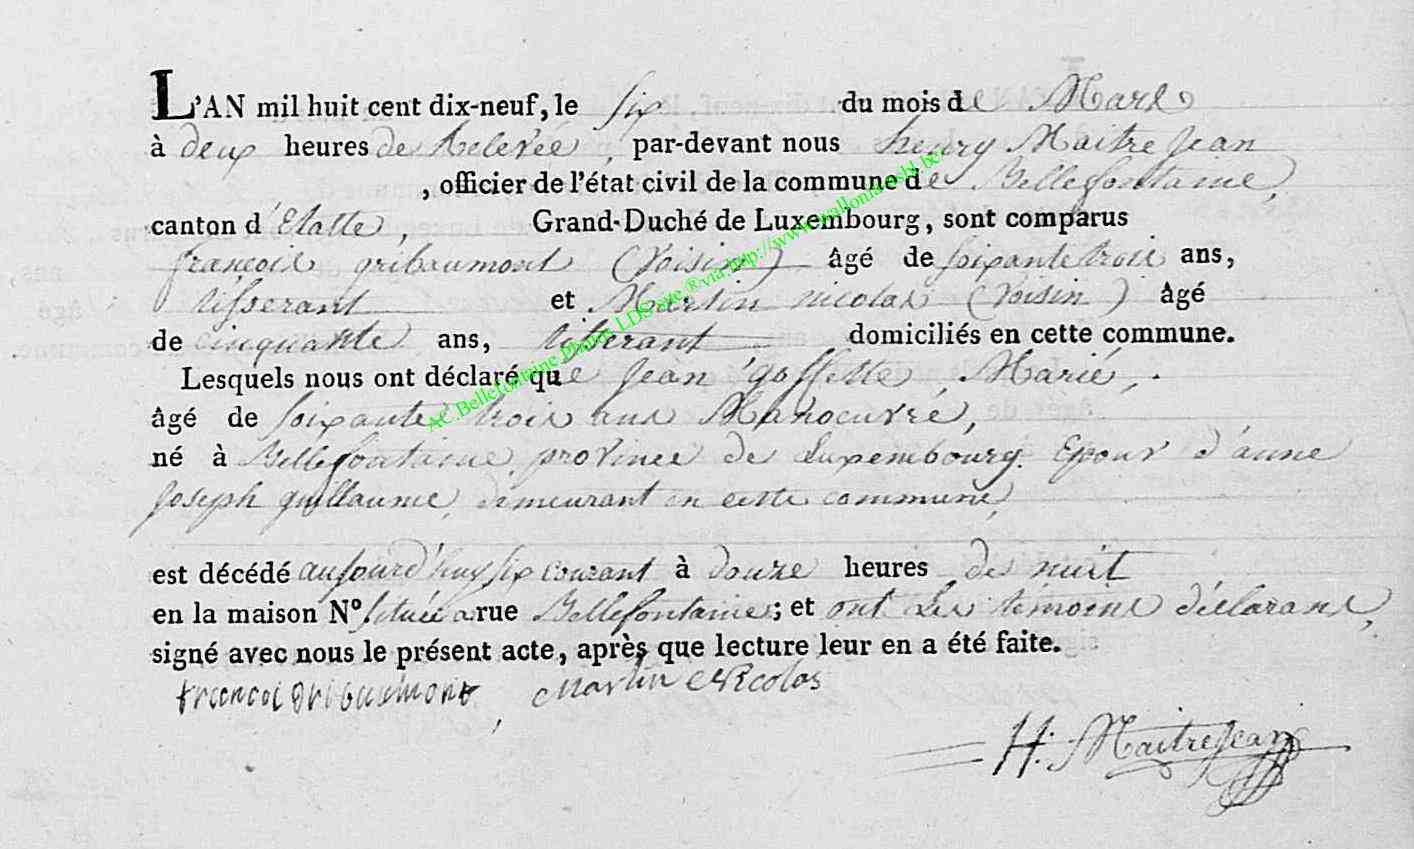 L'AN mil huit cent dix-neuf, le six du mois de Mars
à deux heures de Relevée, par-devant nous henry Maitre Jean
, officier de l'état civil de la commune de Bellefontaine,
canton d'Etalle, Grand-Duché de Luxembourg, sont comparus
françois gribaumont (Voisin) âgé de soixante trois ans,
tisserant et Martin nicolas (Voisin) âgé
de cinquante ans, tisserant domiciliés en cette commune.
Lesquels nous ont déclaré que Jean goffette, Marié,
âgé de soixante trois ans Manoeuvre,
né à Bellefontaine, province de Luxembourg. Epoux d'anne
Joseph guillaume, demeurant en cette commune,
est décédé aujourd'huy six courant à douze heures de nuit
en la maison N° située a rue Bellefontaine; et ont Les temoins déclarans,
signé avec nous le présent acte, après que lecture leur en a été faite.
francoi gribaumont, Martin Nicolas
H. Maitrejean
AC.Bellefontaine Photos LDS site ® via http://www.wallonia.asbl.be